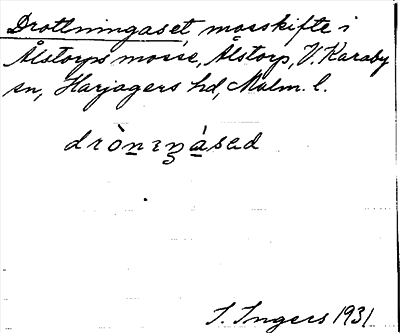 Drottningaset, mosskifte i
Ålstorps mosse, Ålstorp, V. Karaby
sn, Harjagers hd, Malm. l.
drònıŋásad
I. Ingers 1931